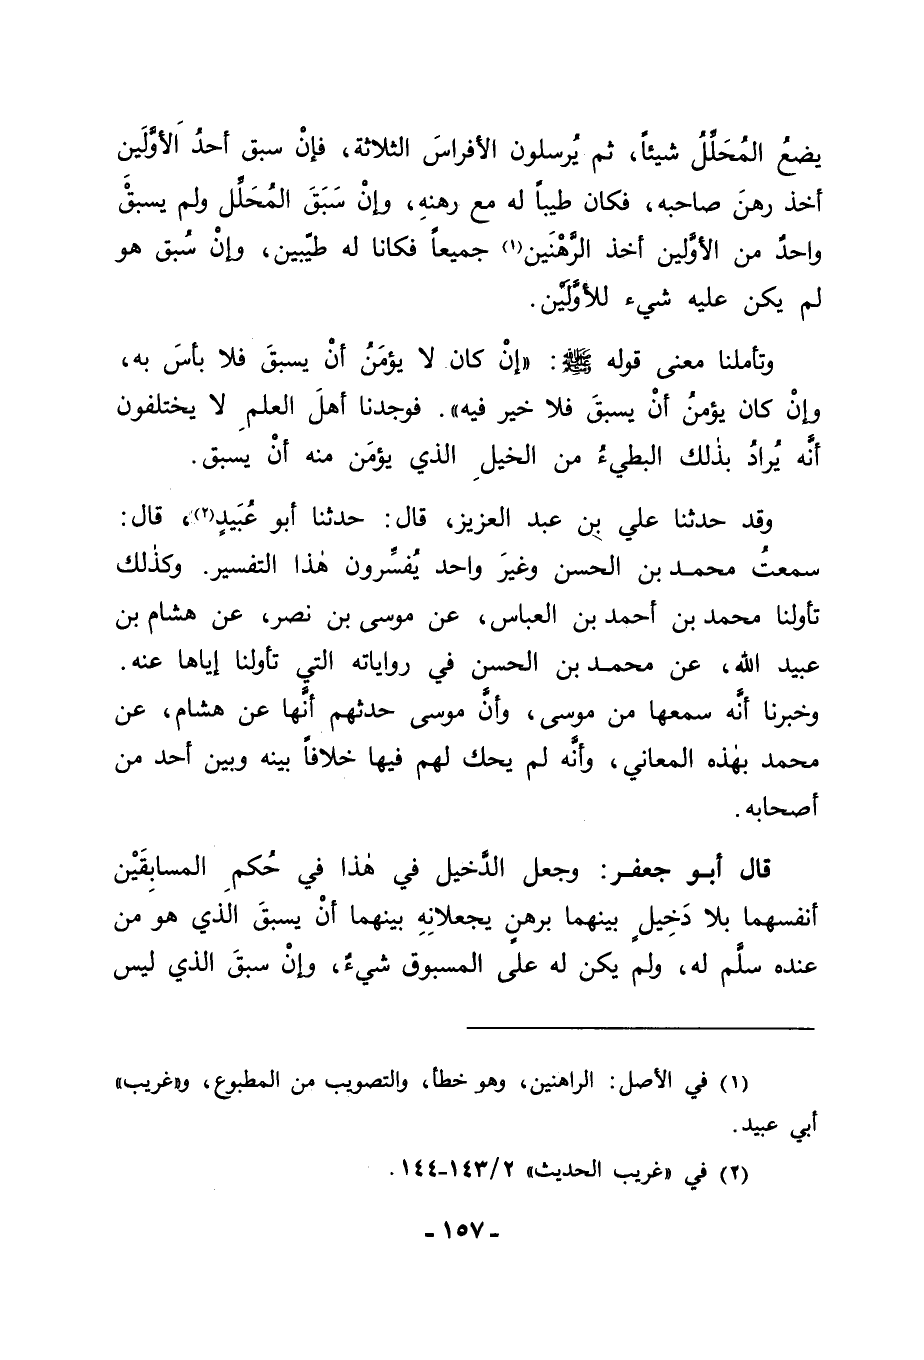 يضعُ المُحَلِّلُ شيئاً، ثم يُرسلون الأفراسَ الثلاثة، فإنْ سبق أحدُ الأوَّلَين
أخذ رهنَ صاحبه، فكان طيباً له مع رهنهِ، وإنْ سَبَقَ المُحَلِّل ولم يسبقْ
واحدٌ من الأوَّلين أخذ الرَّهْنَين(١) جميعاً فكانا له طيّبين، وإنْ سُبق هو
لم يكن عليه شيء للأوَّلَيْن.
وتأملنا معنى قوله ﷺ: «إنْ كان لا يؤمَنُ أنْ يسبقَ فلا بأسَ به،
وإنْ كان يؤمنُ أنْ يسبقَ فلا خير فيه». فوجدنا أهلَ العلمِ لا يختلفون
أنَّه يُرادُ بذٰلك البطيءُ من الخيلِ الذي يؤمَن منه أنْ يسبق.
وقد حدثنا علي بن عبد العزيز، قال: حدثنا أبو عُبَيدٍ(٢)، قال:
سمعتُ محمـد بن الحسن وغيرَ واحد يُفسِّرون هٰذا التفسير. وكذٰلك
تأولنا محمد بن أحمد بن العباس، عن موسى بن نصر، عن هشام بن
عبيد الله، عن محمـد بن الحسن في رواياته التي تأولنا إياها عنه.
وخبرنا أنَّه سمعها من موسى، وأنَّ موسى حدثهم أنَّها عن هشام، عن
محمد بهٰذه المعاني، وأنَّه لم يحك لهم فيها خلافاً بينه وبين أحد من
أصحابه.
قال أبـو جعفـر: وجعل الدَّخيل في هٰذا في حُكمِ المسابِقَيْن
أنفسهما بلا دَخِيلٍ بينهما برهنٍ يجعلانِهِ بينهما أنْ يسبقَ الذي هو من
عنده سلَّم له، ولم يكن له على المسبوق شيءٌ، وإنْ سبقَ الذي ليس
(١) في الأصل: الراهنين، وهو خطأ، والتصويب من المطبوع، و«غريب»
أبي عبيد.
(٢) في «غريب الحديث» ١٤٣/٢-١٤٤.
- ١٥٧ -